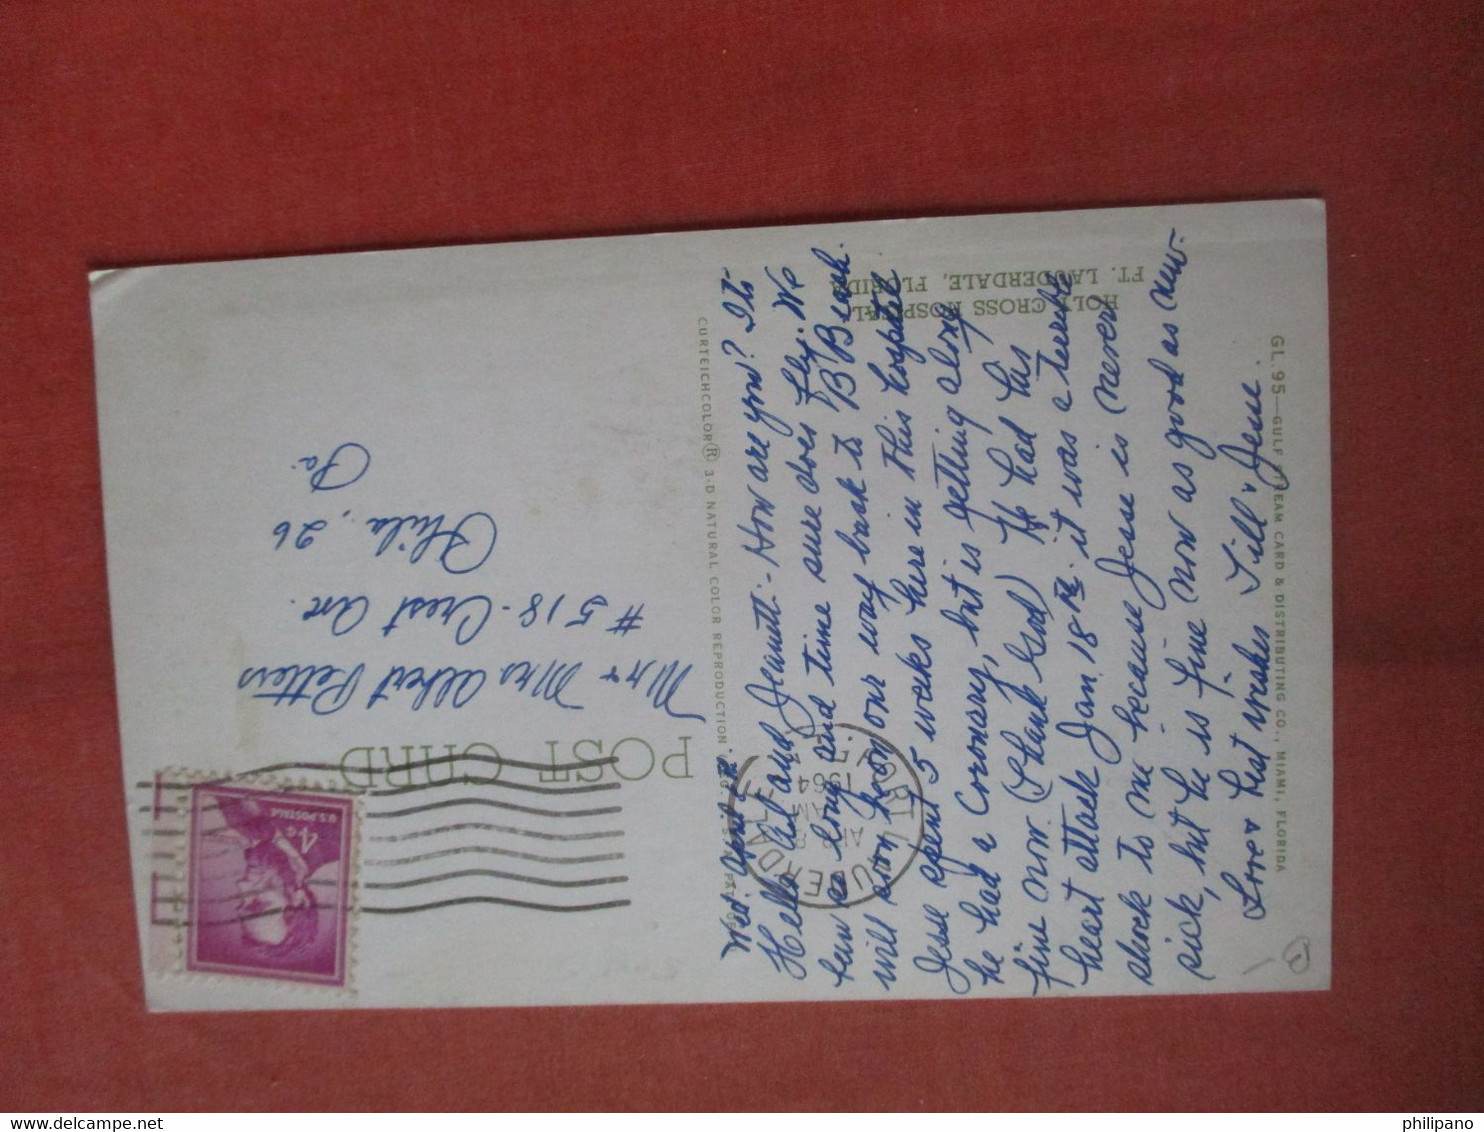 HOLY CROSS HOSPITAL
FT. LAUDERDALE, FLORIDA
POST CARD
U.S. POSTAGE
4¢
FORT LAUDERDALE
APR 8
AM
1964
Wed. April
Hello Al and Jeanett:- How are you? It's
been a long and time sure does fly. We
will soon be on our way back to B Beach.
Jesse spent 5 weeks here in this hospital
he had a Coronary, but is getting along
fine now (Thank God) He had his
heart attack Jan. 18th. it was a terrible
shock to me because Jesse is never
sick, but he is fine now as good as new.
Love & best wishes Till & Jesse.
Mr & Mrs Albert Petters
#518- Crest Ave.
Phila, 26
Pa.
CURTEICHCOLOR® 3-D NATURAL COLOR REPRODUCTION
GL.95—GULF STREAM CARD & DISTRIBUTING CO., MIAMI, FLORIDA
B-
philipano